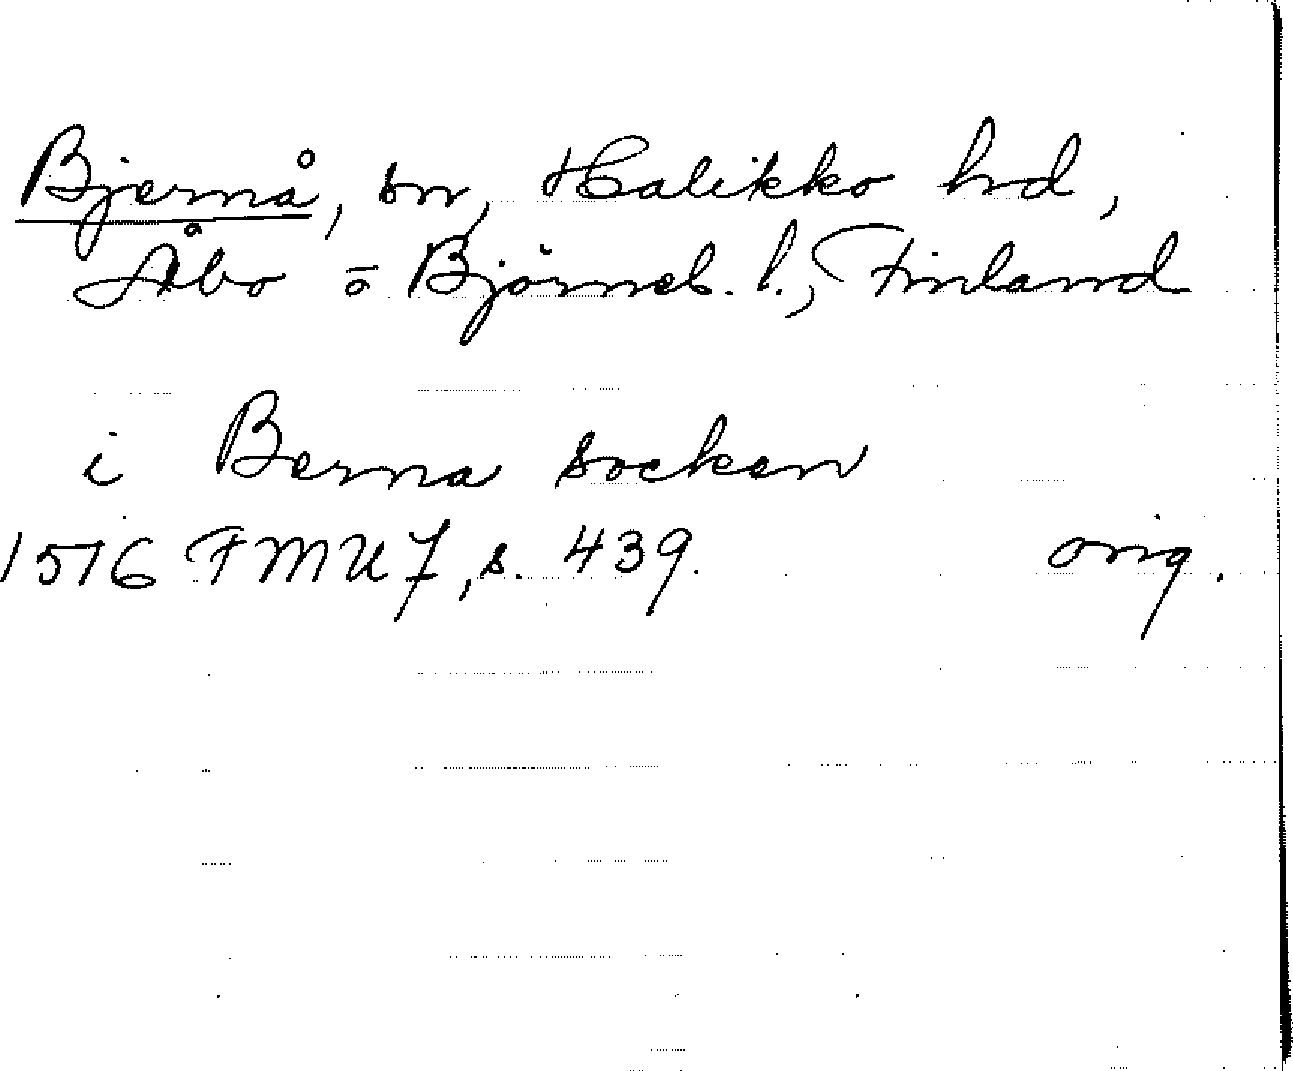 Bjernå, sn, Halikko hrd,
Åbo o Björneb. l., Finland
i Berna socken
1516 FMU 7, s. 439. orig.